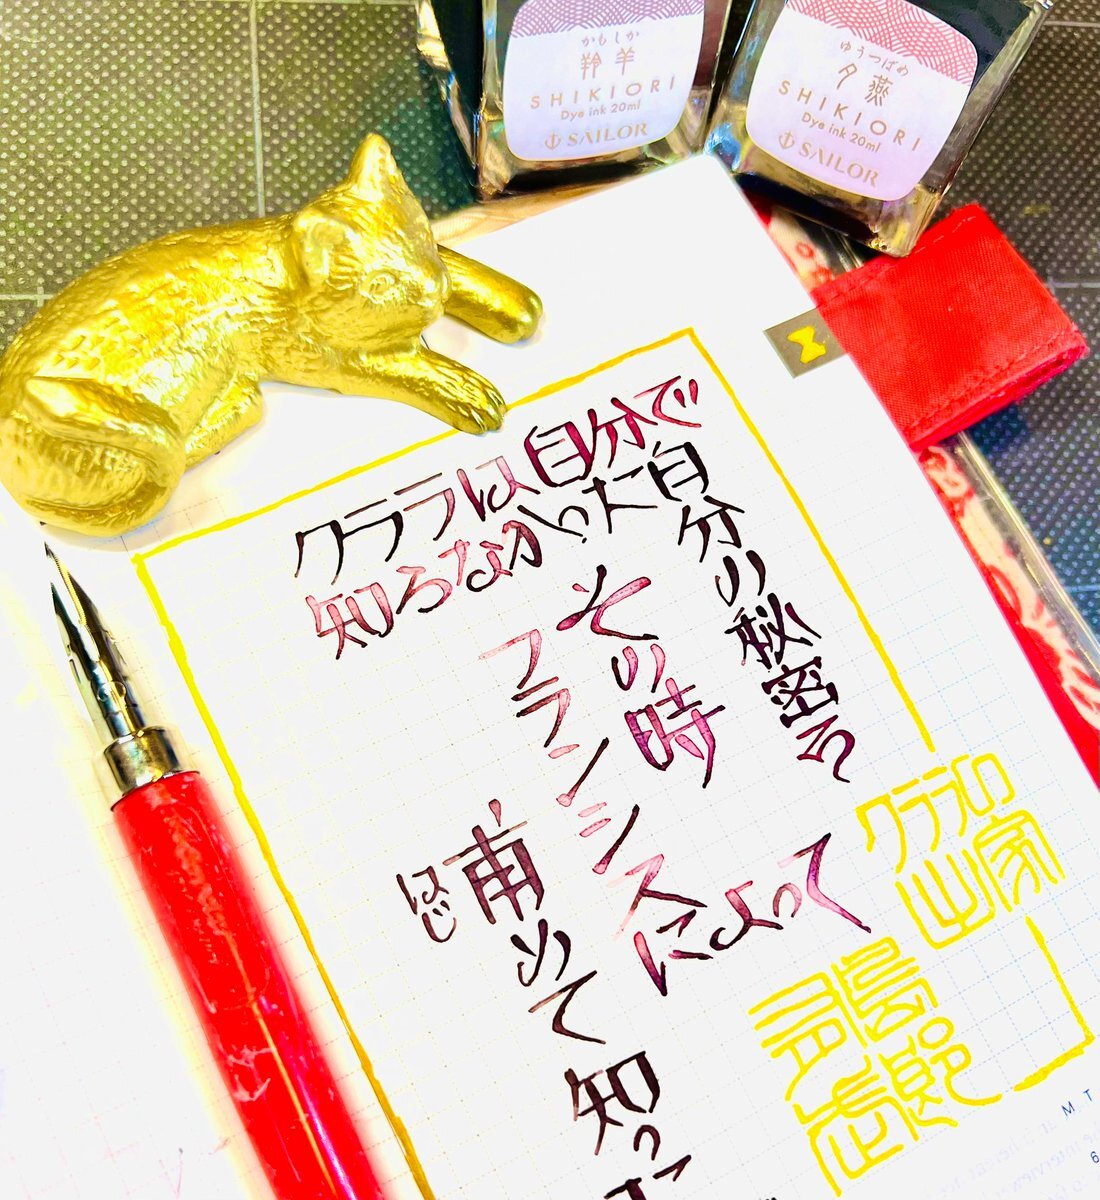 かもしか
羚羊
SHIKIORI
Dye ink 20ml
SAILOR
ゆうつばめ
夕燕
SHIKIORI
Dye ink 20ml
SAILOR
クララは自分で
知らなかった
自分の秘密を
その時
フランシス
によって
甫めて
はじ
知った
クララの
出家
有島
武郎
M T
6